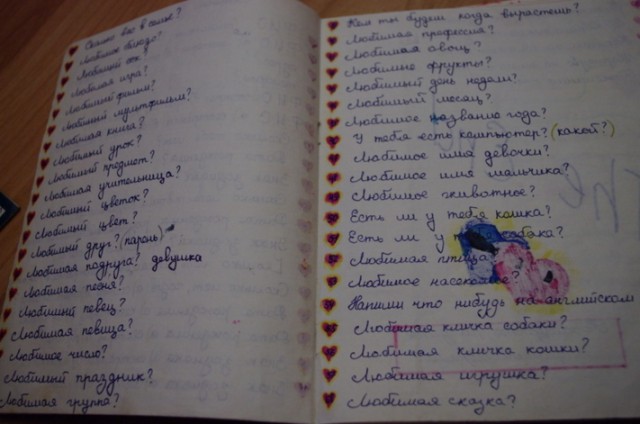 Сколько вас в семье?
Любимое блюдо?
Любимый сок?
Любимая игра?
Любимый фильм?
Любимый мультфильм?
Любимая книга?
Любимый урок?
Любимый предмет?
Любимая учительница?
Любимый цветок?
Любимый цвет?
Любимый друг? (пароль)
Любимая подруга? девушка
Любимая песня?
Любимый певец?
Любимая певица?
Любимое число?
Любимый праздник?
Любимая группа?
Кем ты будеш когда вырастешь?
Любимая профессия?
Любимая овощ?
Любимые фрукты?
Любимый день недели?
Любимый месяц?
Любимое название года?
У тебя есть компьютер? (какой?)
Любимое имя девочки?
Любимое имя мальчика?
Любимое животное?
Есть ли у тебя кошка?
Есть ли у собака?
Любимая птица?
Любимое насекомое?
Напиши что нибудь на английском
Любимая кличка собаки?
Любимая кличка кошки?
Любимая игрушка?
Любимая сказка?